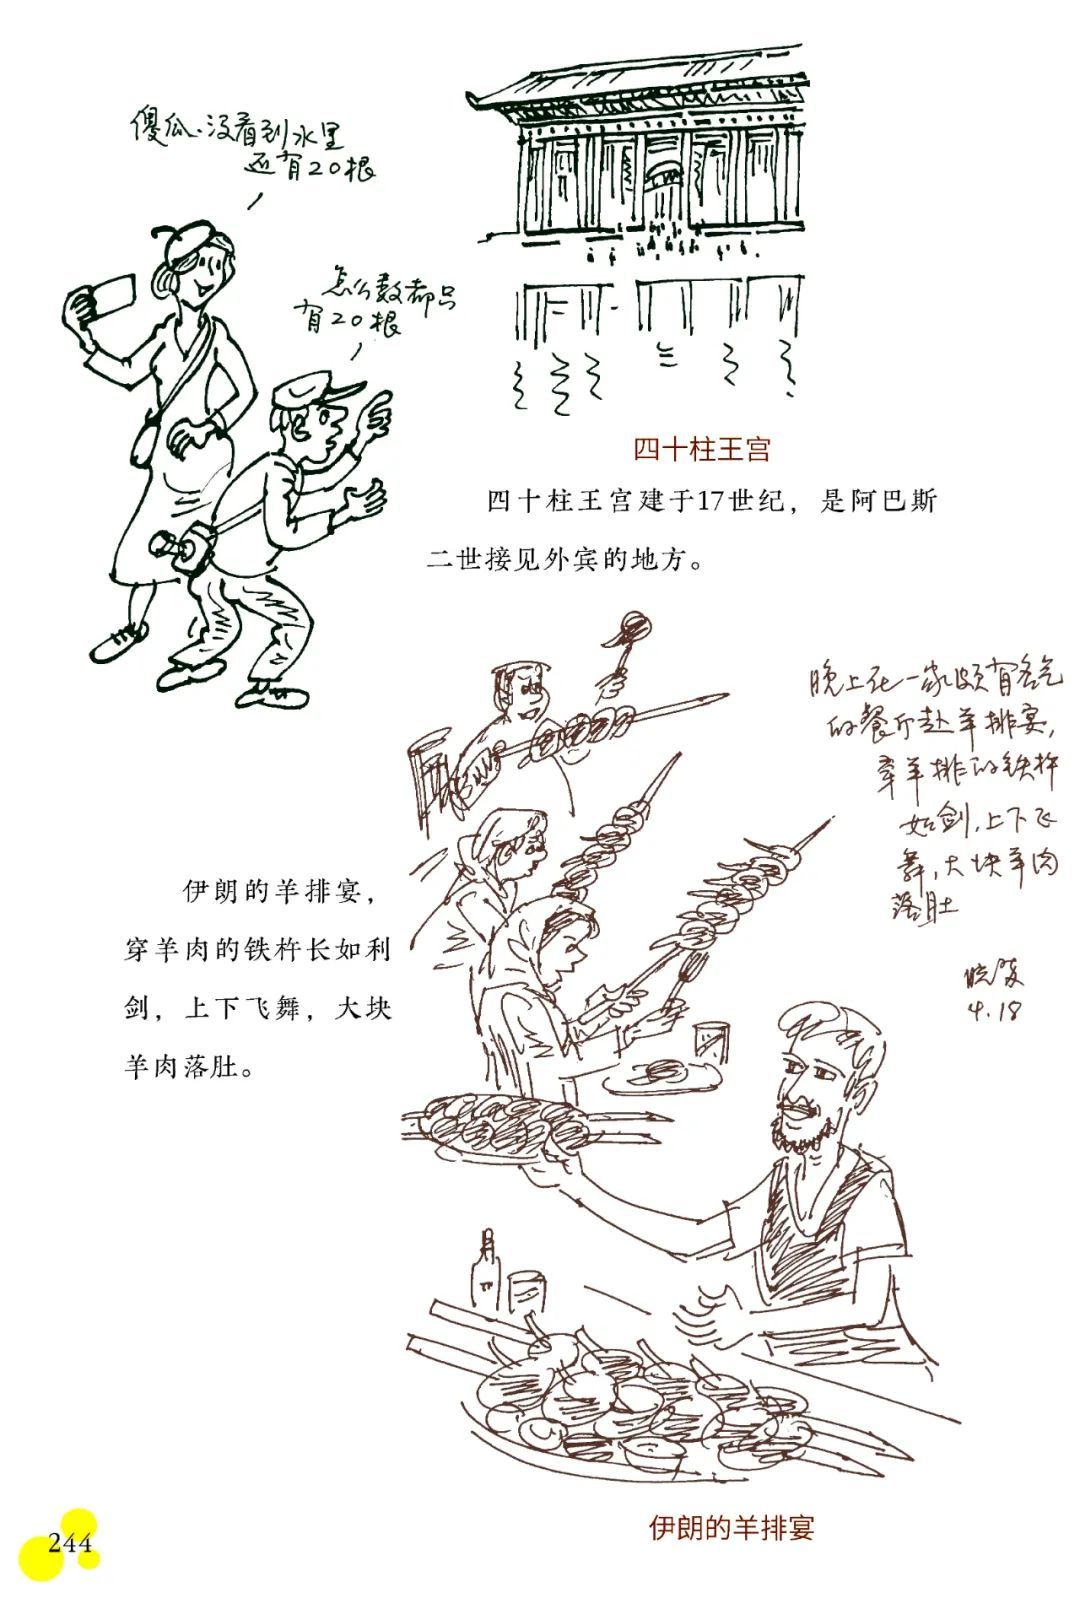 傻瓜、没看到水里
还有20根
怎么数都只
有20根
四十柱王宫
四十柱王宫建于17世纪，是阿巴斯
二世接见外宾的地方。
晚上在一家颇有名气
的餐厅赴羊排宴，
穿羊排的铁杵
如剑，上下飞
舞，大块羊肉
落肚
4.18
伊朗的羊排宴，
穿羊肉的铁杵长如利
剑，上下飞舞，大块
羊肉落肚。
伊朗的羊排宴
244